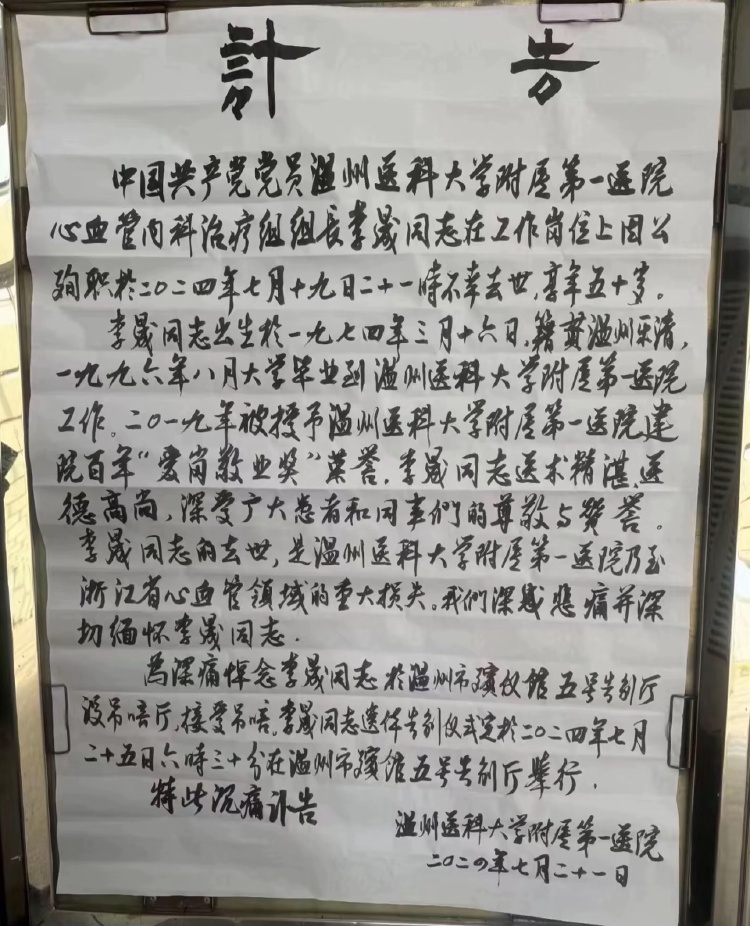 訃告
中国共产党党员温州医科大学附属第一医院
心血管内科治疗组组长李晟同志在工作岗位上因公
殉职於二〇二四年七月十九日二十一時不幸去世,享年五十岁。
李晟同志出生於一九七四年三月十六日,籍贯温州乐清,
一九九六年八月大学毕业到温州医科大学附属第一医院
工作。二〇一九年被授予温州医科大学附属第一医院建
院百年“爱岗敬业奖”荣誉。李晟同志医术精湛,医
德高尚,深受广大患者和同事們的尊敬与赞誉。
李晟同志的去世,是温州医科大学附属第一医院乃至
浙江省心血管领域的重大损失。我們深感悲痛并深
切缅怀李晟同志.
為深痛悼念李晟同志於温州市殡仪馆五号告别厅
设吊唁厅,接受吊唁。李晟同志遗体告别仪式定於二〇二四年七月
二十五日六時三十分在温州市殡馆五号告别厅举行.
特此沉痛讣告
温州医科大学附属第一医院
二〇二四年七月二十一日